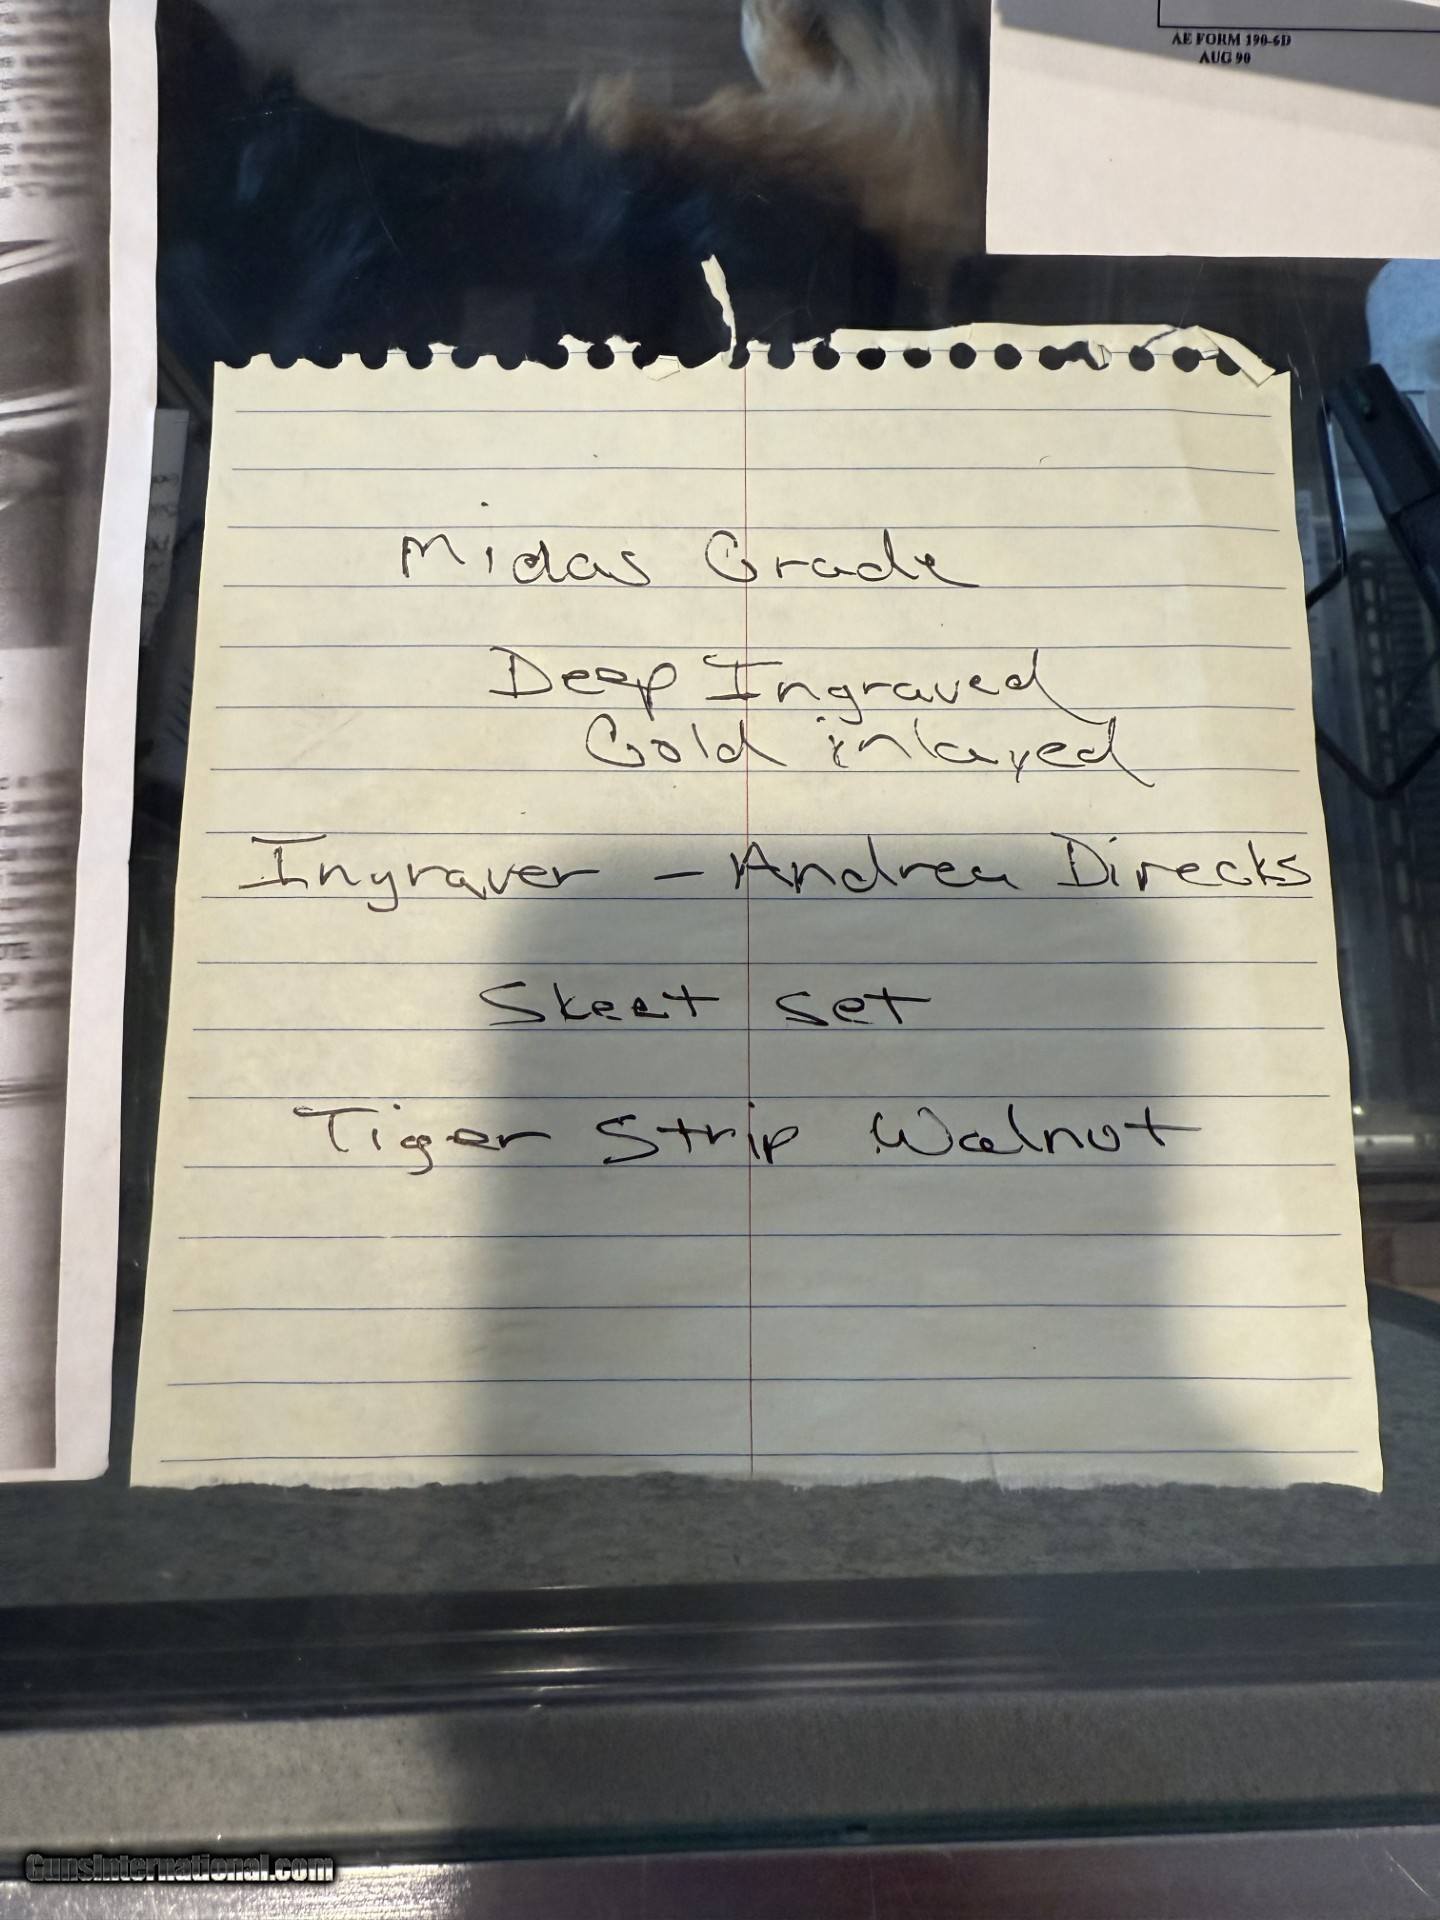 AE FORM 190-6D
AUG 90
Midas Grade
Deep Ingraved
Gold inlayed
Ingraver - Andrea Direcks
Skeet set
Tiger Strip Walnut
GunsInternational.com